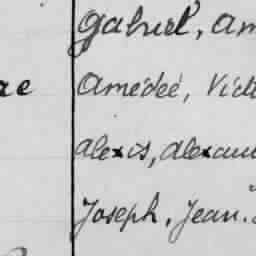 Gabriel, Am
re Amédée, Vict
Alexis, Alexan
Joseph, Jean.